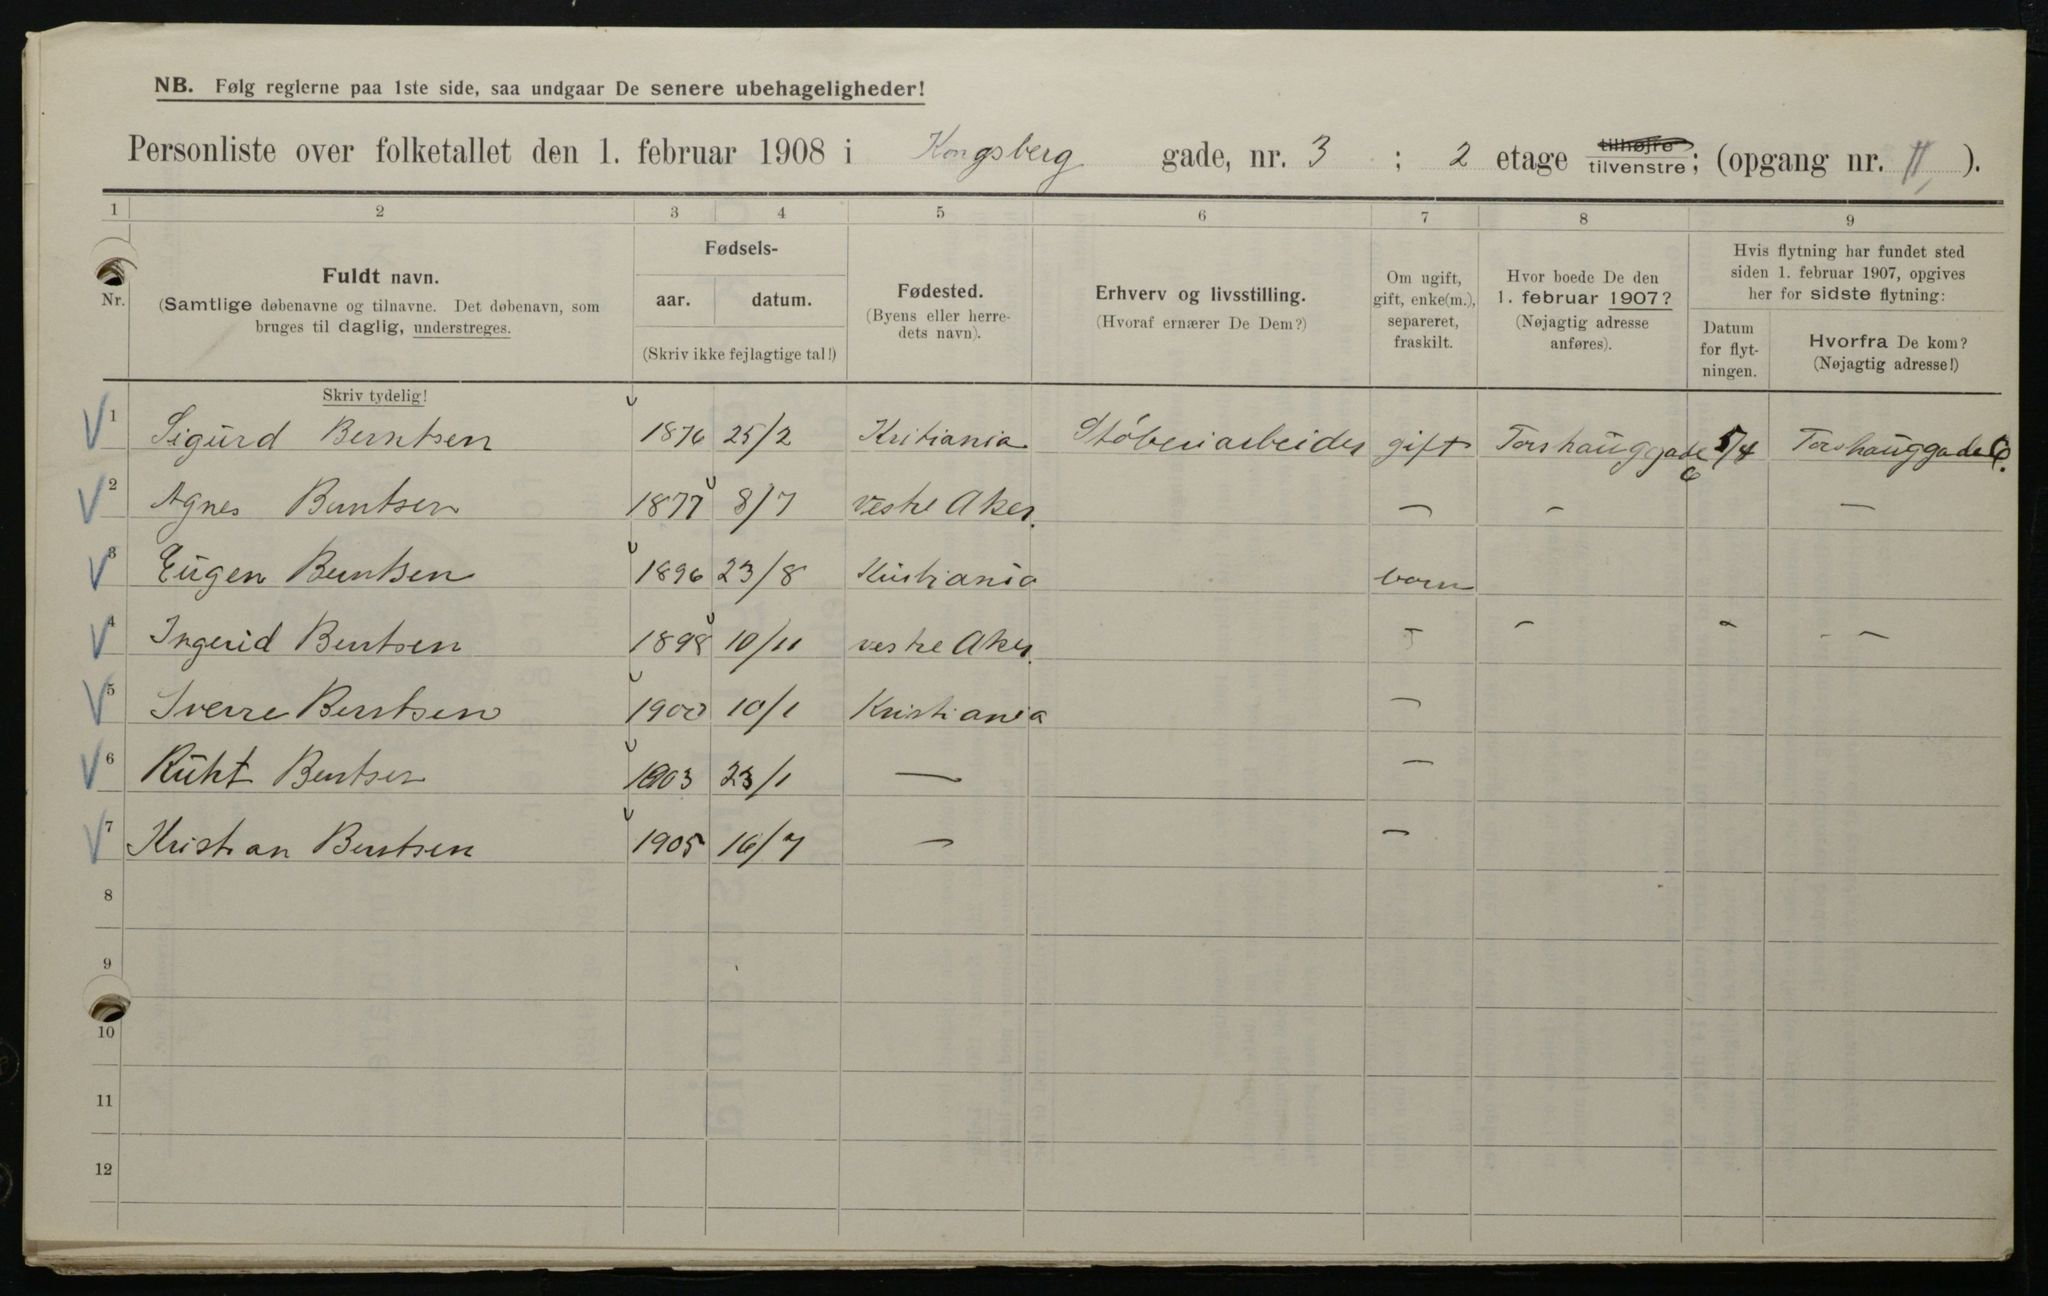 NB. Følg reglerne paa 1ste side, saa undgaar De senere ubehageligheder!
Personliste over folketallet den 1. februar 1908 i Kongsberg gade, nr. 3 ; 2 etage tilhøjre tilvenstre; (opgang nr. II, ).
1 2 3 4 5 6 7 8 9
Nr.
Fuldt navn.
(Samtlige døbenavne og tilnavne. Det døbenavn, som
bruges til daglig, understreges.
Fødsels-
aar. datum.
(Skriv ikke fejlagtige tal!)
Fødested.
(Byens eller herre-
dets navn).
Erhverv og livsstilling.
(Hvoraf ernærer De Dem?)
Om ugift,
gift, enke(m.),
separeret,
fraskilt.
Hvor boede De den
1. februar 1907?
(Nøjagtig adresse
anføres).
Hvis flytning har fundet sted
siden 1. februar 1907, opgives
her for sidste flytning:
Datum
for flyt-
ningen.
Hvorfra De kom?
(Nøjagtig adresse!)
Skriv tydelig!
1 Sigurd Berntsen 1876 25/2 Kritiania Støberiarbeider gift Torshauggade 6 5/4 Torshauggade 6.
2 Agnes Berntsen 1877 8/7 vestre Aker. — — —
3 Eugen Berntsen 1896 23/8 Kristiania barn
4 Ingerid Berntsen 1898 10/11 vestre Aker. – – – – –
5 Sverre Berntsen 1900 10/1 Kristiania —
6 Ruht Berntsen 1903 23/1 — —
7 Kristian Berntsen 1905 16/7 — —
8
9
10
11
12